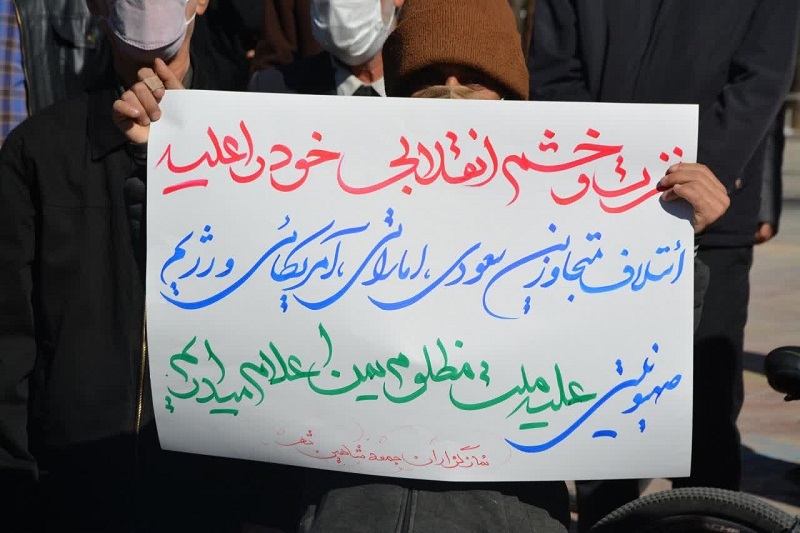 نفرت و خشم انقلابی خود را علیه
ائتلاف متجاوزین سعودی، اماراتی، آمریکائی و رژیم
صهیونیستی علیه ملت مظلوم یمن اعلام میداریم
نمازگزاران جمعه شاهین شهر